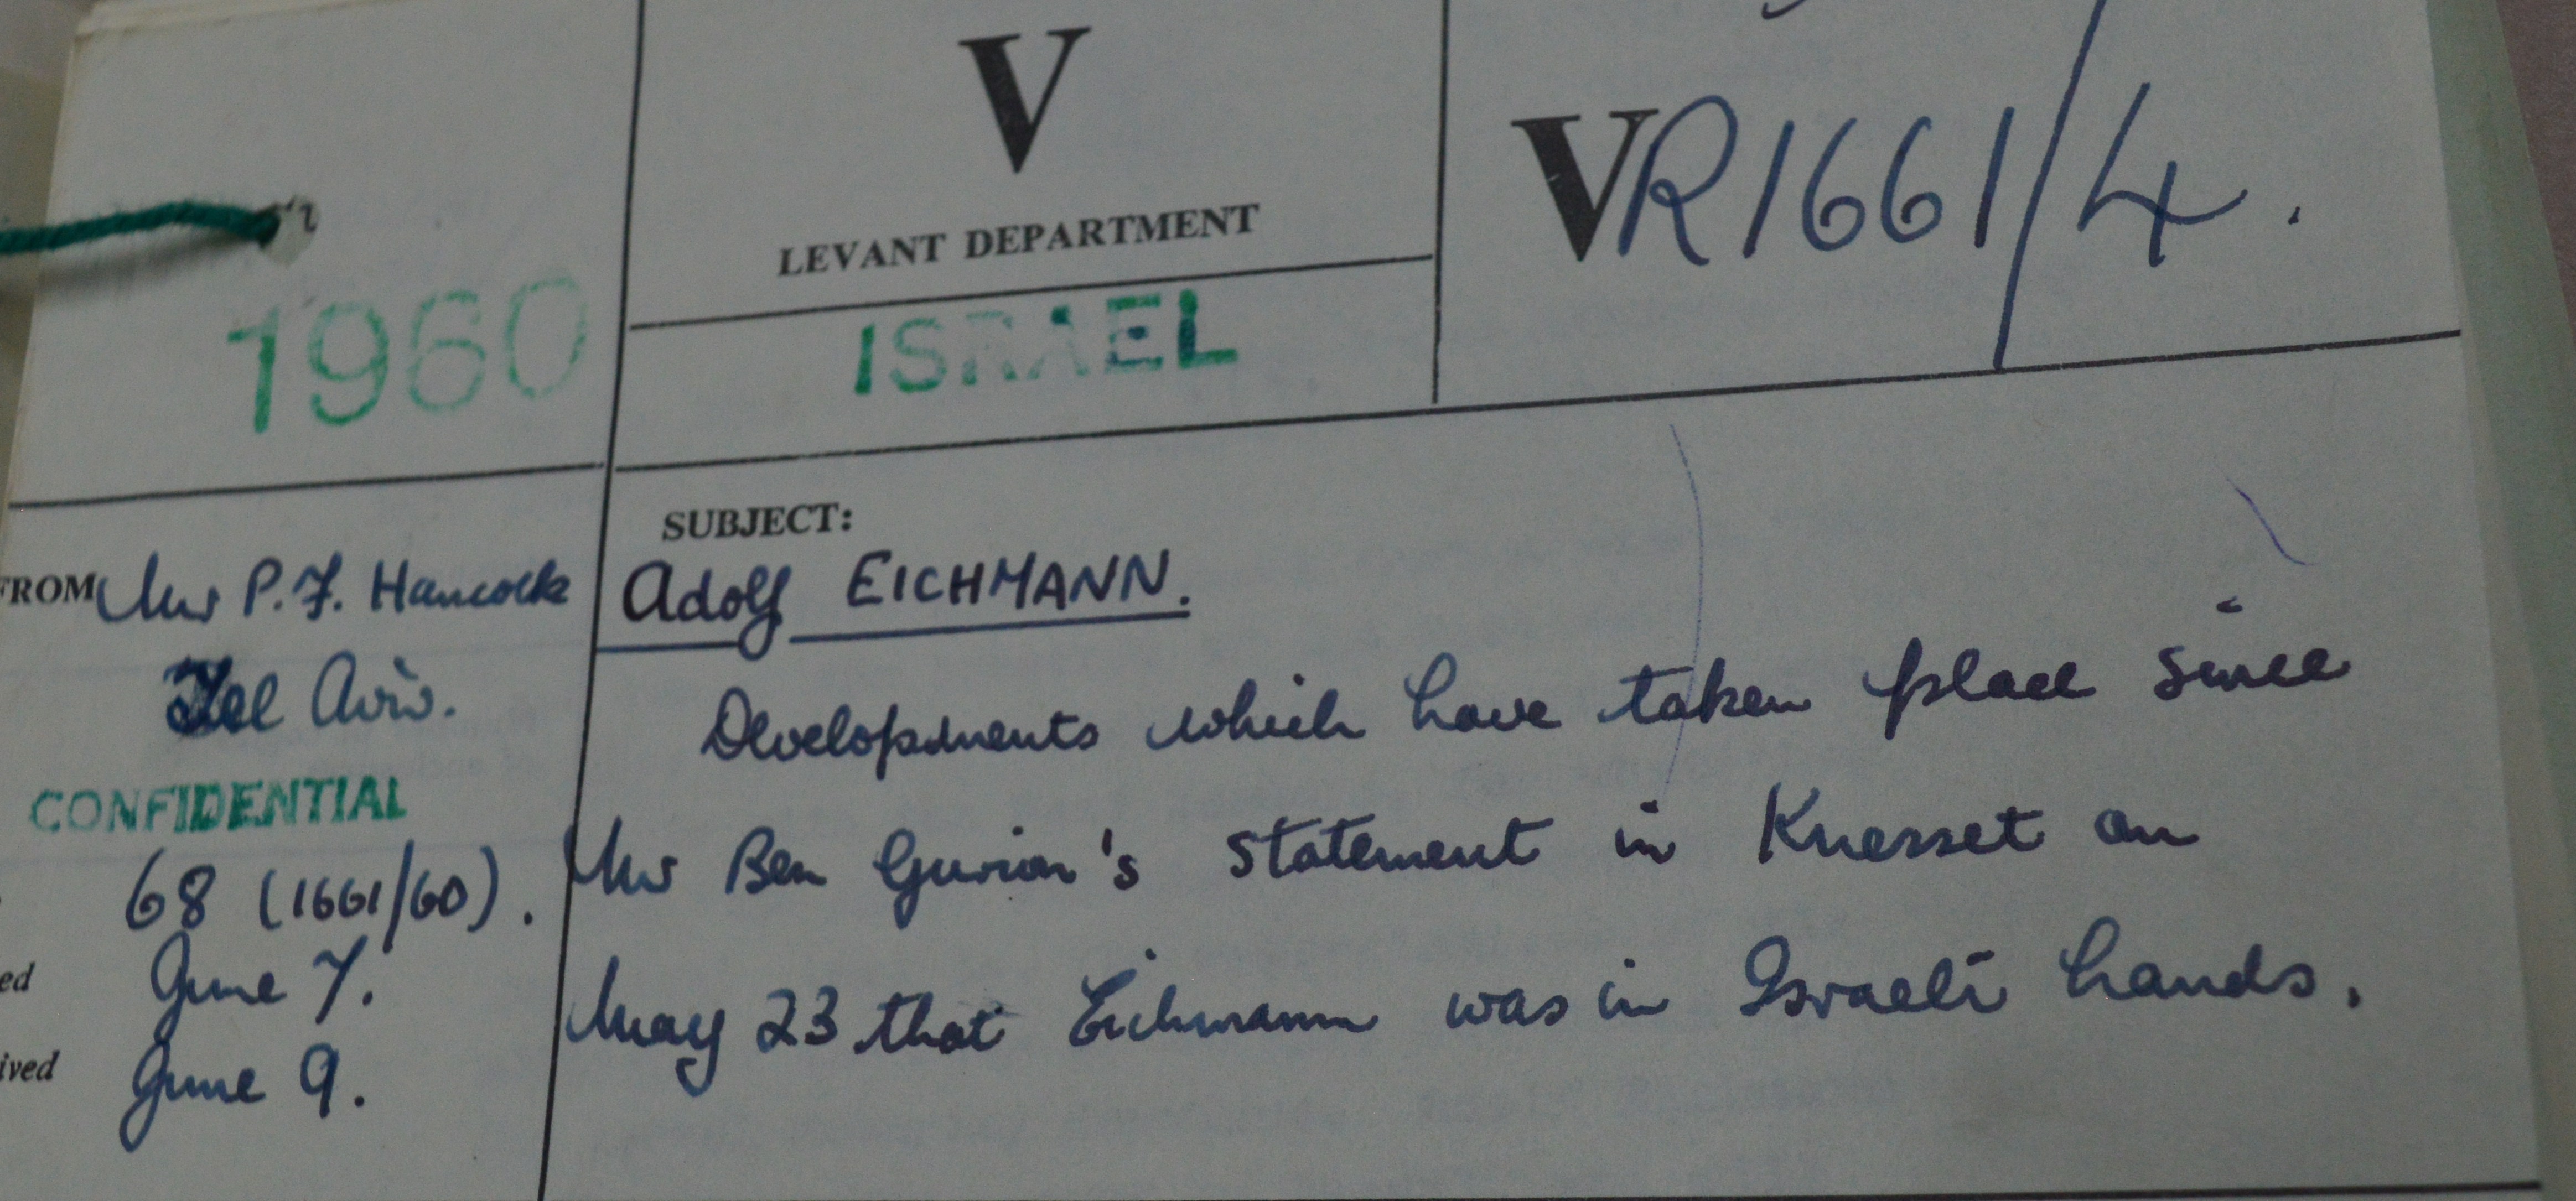 V
LEVANT DEPARTMENT
VR1661/4.
1960
ISRAEL
SUBJECT:
FROM Mr P.F. Hancock
Tel Aviv.
CONFIDENTIAL
68 (1661/60).
ed June 7.
ived June 9.
Adolf EICHMANN.
Developments which have taken place since
Mr Ben Gurion's statement in Knesset on
May 23 that Eichmann was in Israeli hands.